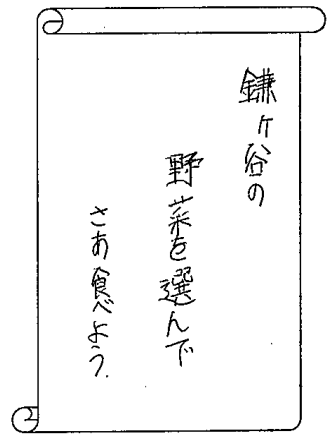 鎌ヶ谷の
野菜を選んで
さあ食べよう.